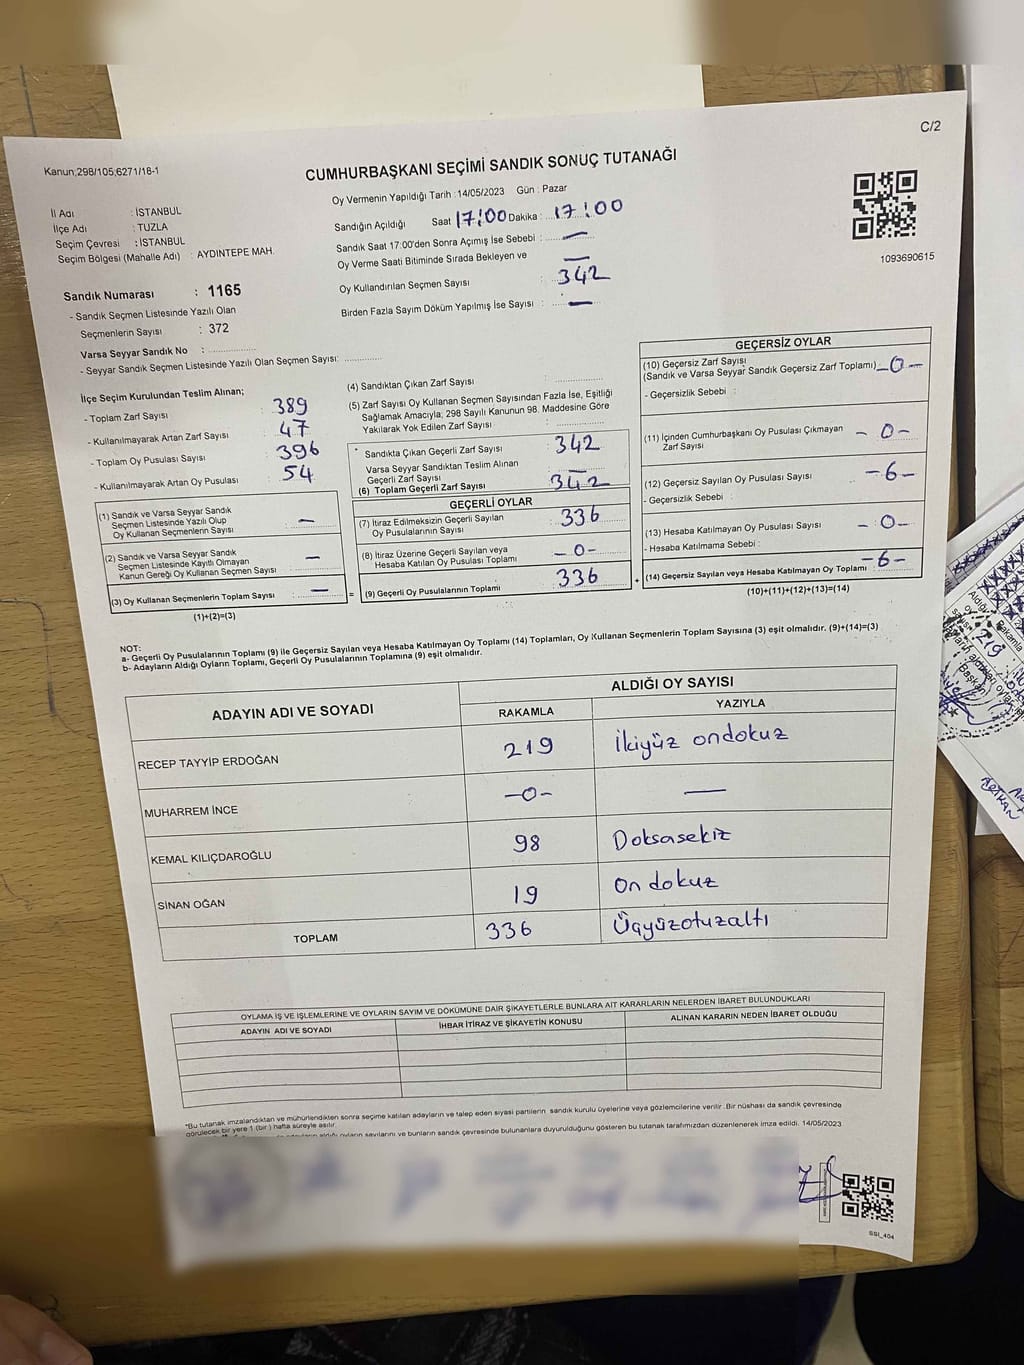 C/2
Kanun;298/105,6271/18-1
CUMHURBAŞKANI SEÇİMİ SANDIK SONUÇ TUTANAĞI
Oy Vermenin Yapıldığı Tarih : 14/05/2023 Gün : Pazar
İl Adı : İSTANBUL
İlçe Adı : TUZLA
Seçim Çevresi : İSTANBUL
Seçim Bölgesi (Mahalle Adı) : AYDINTEPE MAH.
Sandığın Açıldığı Saat 17:00 Dakika : 17:00
Sandık Saat 17:00'den Sonra Açımış İse Sebebi : —
Oy Verme Saati Bitiminde Sırada Bekleyen ve —
Oy Kullandırılan Seçmen Sayısı 342
Birden Fazla Sayım Döküm Yapılmış İse Sayısı : —
1093690615
Sandık Numarası : 1165
- Sandık Seçmen Listesinde Yazılı Olan
Seçmenlerin Sayısı : 372
Varsa Seyyar Sandık No :
- Seyyar Sandık Seçmen Listesinde Yazılı Olan Seçmen Sayısı:
İlçe Seçim Kurulundan Teslim Alınan;
- Toplam Zarf Sayısı : 389
- Kullanılmayarak Artan Zarf Sayısı : 47
- Toplam Oy Pusulası Sayısı : 396
- Kullanılmayarak Artan Oy Pusulası : 54
(1) Sandık ve Varsa Seyyar Sandık
Seçmen Listesinde Yazılı Olup
Oy Kullanan Seçmenlerin Sayısı : —
(2) Sandık ve Varsa Seyyar Sandık
Seçmen Listesinde Kayıtlı Olmayan
Kanun Gereği Oy Kullanan Seçmen Sayısı : —
(3) Oy Kullanan Seçmenlerin Toplam Sayısı : —
(1)+(2)=(3)
(4) Sandıktan Çıkan Zarf Sayısı :
(5) Zarf Sayısı Oy Kullanan Seçmen Sayısından Fazla İse, Eşitliği
Sağlamak Amacıyla; 298 Sayılı Kanunun 98. Maddesine Göre
Yakılarak Yok Edilen Zarf Sayısı :
Sandıkta Çıkan Geçerli Zarf Sayısı : 342
Varsa Seyyar Sandıktan Teslim Alınan
Geçerli Zarf Sayısı : —
(6) Toplam Geçerli Zarf Sayısı : 342
GEÇERLİ OYLAR
(7) İtiraz Edilmeksizin Geçerli Sayılan
Oy Pusulalarının Sayısı : 336
(8) İtiraz Üzerine Geçerli Sayılan veya
Hesaba Katılan Oy Pusulası Toplamı : -0-
(9) Geçerli Oy Pusulalarının Toplamı : 336
GEÇERSİZ OYLAR
(10) Geçersiz Zarf Sayısı
(Sandık ve Varsa Seyyar Sandık Geçersiz Zarf Toplamı) -0-
- Geçersizlik Sebebi :
(11) İçinden Cumhurbaşkanı Oy Pusulası Çıkmayan
Zarf Sayısı : -0-
(12) Geçersiz Sayılan Oy Pusulası Sayısı : -6-
- Geçersizlik Sebebi :
(13) Hesaba Katılmayan Oy Pusulası Sayısı : -0-
- Hesaba Katılmama Sebebi :
(14) Geçersiz Sayılan veya Hesaba Katılmayan Oy Toplamı : -6-
(10)+(11)+(12)+(13)=(14)
NOT:
a- Geçerli Oy Pusulalarının Toplamı (9) ile Geçersiz Sayılan veya Hesaba Katılmayan Oy Toplamı (14) Toplamları, Oy Kullanan Seçmenlerin Toplam Sayısına (3) eşit olmalıdır. (9)+(14)=(3)
b- Adayların Aldığı Oyların Toplamı, Geçerli Oy Pusulalarının Toplamına (9) eşit olmalıdır.
ADAYIN ADI VE SOYADI ALDIĞI OY SAYISI
RAKAMLA YAZIYLA
RECEP TAYYİP ERDOĞAN 219 İkiyüz ondokuz
MUHARREM İNCE -0- —
KEMAL KILIÇDAROĞLU 98 Doksasekiz
SİNAN OĞAN 19 on dokuz
TOPLAM 336 Üçyüzotuzaltı
OYLAMA İŞ VE İŞLEMLERİNE VE OYLARIN SAYIM VE DÖKÜMÜNE DAİR ŞİKAYETLERLE BUNLARA AİT KARARLARIN NELERDEN İBARET BULUNDUKLARI
ADAYIN ADI VE SOYADI İHBAR İTİRAZ VE ŞİKAYETİN KONUSU ALINAN KARARIN NEDEN İBARET OLDUĞU
*Bu tutanak imzalandıktan ve mühürlendikten sonra seçime katılan adayların ve talep eden siyasi partilerin sandık kurulu üyelerine veya gözlemcilerine verilir. Bir nüshası da sandık çevresinde
görülecek bir yere 1 (bir) hafta süreyle asılır.
aldığı oyların sayılarını ve bunların sandık çevresinde bulunanlara duyurulduğunu gösteren bu tutanak tarafımızdan düzenlenerek imza edildi. 14/05/2023
SSI_404
219
Başkan